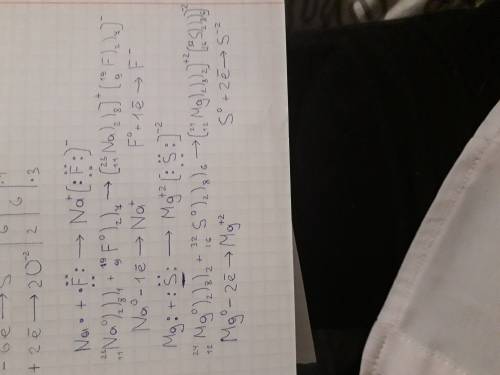 - 6ē → S | 6 | 6
+ 2ē → 2O⁻² | 2 | 6 | ·3
Na• + •F̈: → Na⁺[:F̈:]⁻
²³₁₁Na⁰)₂)₈)₁ + ¹⁹₉F⁰)₂)₇ → [²³₁₁Na)₂)₈]⁺[¹⁹₉F)₂)₈]⁻
Na⁰ - 1ē → Na⁺ F⁰ + 1ē → F⁻
Mg: + :S̈: → Mg⁺²[:S̈:]⁻²
²⁴₁₂Mg⁰)₂)₈)₂ + ³²₁₆S⁰)₂)₈)₆ → [²⁴₁₂Mg)₂)₈]⁺²[³²₁₆S)₂)₈)₈]⁻²
Mg⁰ - 2ē → Mg⁺² S⁰ + 2ē → S⁻²